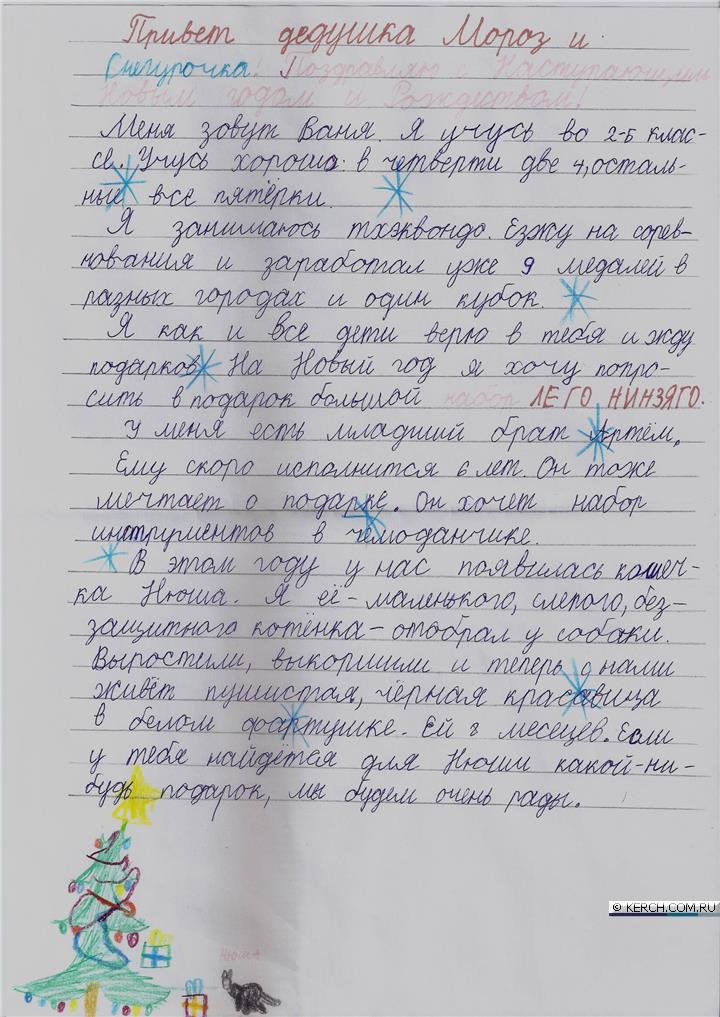 Привет дедушка Мороз и
Снегурочка! Поздравляю с Наступающим
Новым годом и Рождеством!
Меня зовут Ваня. Я учусь во 2-Б клас-
се. Учусь хорошо: в четверти две 4, осталь-
ные все пятёрки.
Я занимаюсь тхэквондо. Езжу на сорев-
нования и заработал уже 9 медалей в
разных городах и один кубок.
Я как и все дети верю в тебя и жду
подарков. На Новый год я хочу попро-
сить в подарок большой набор ЛЕГО НИНЗЯГО.
У меня есть младший брат Артём.
Ему скоро исполнится 6 лет. Он тоже
мечтает о подарке. Он хочет набор
инструментов в чемоданчике.
В этом году у нас появилась кошеч-
ка Нюша. Я её - маленького, слепого, без-
защитного котёнка - отобрал у собаки.
Выростили, выкормили и теперь с нами
живёт пушистая, чёрная красавица
в белом фартушке. Ей 8 месецев. Если
у тебя найдётся для Нюши какой-ни-
будь подарок, мы будем очень рады.
© KERCH.COM.RU
Нюша